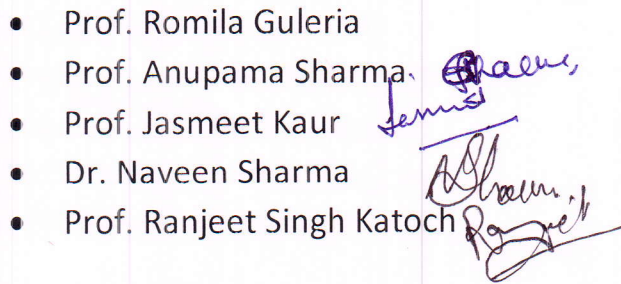 • Prof. Romila Guleria
• Prof. Anupama Sharma
• Prof. Jasmeet Kaur
• Dr. Naveen Sharma
• Prof. Ranjeet Singh Katoch